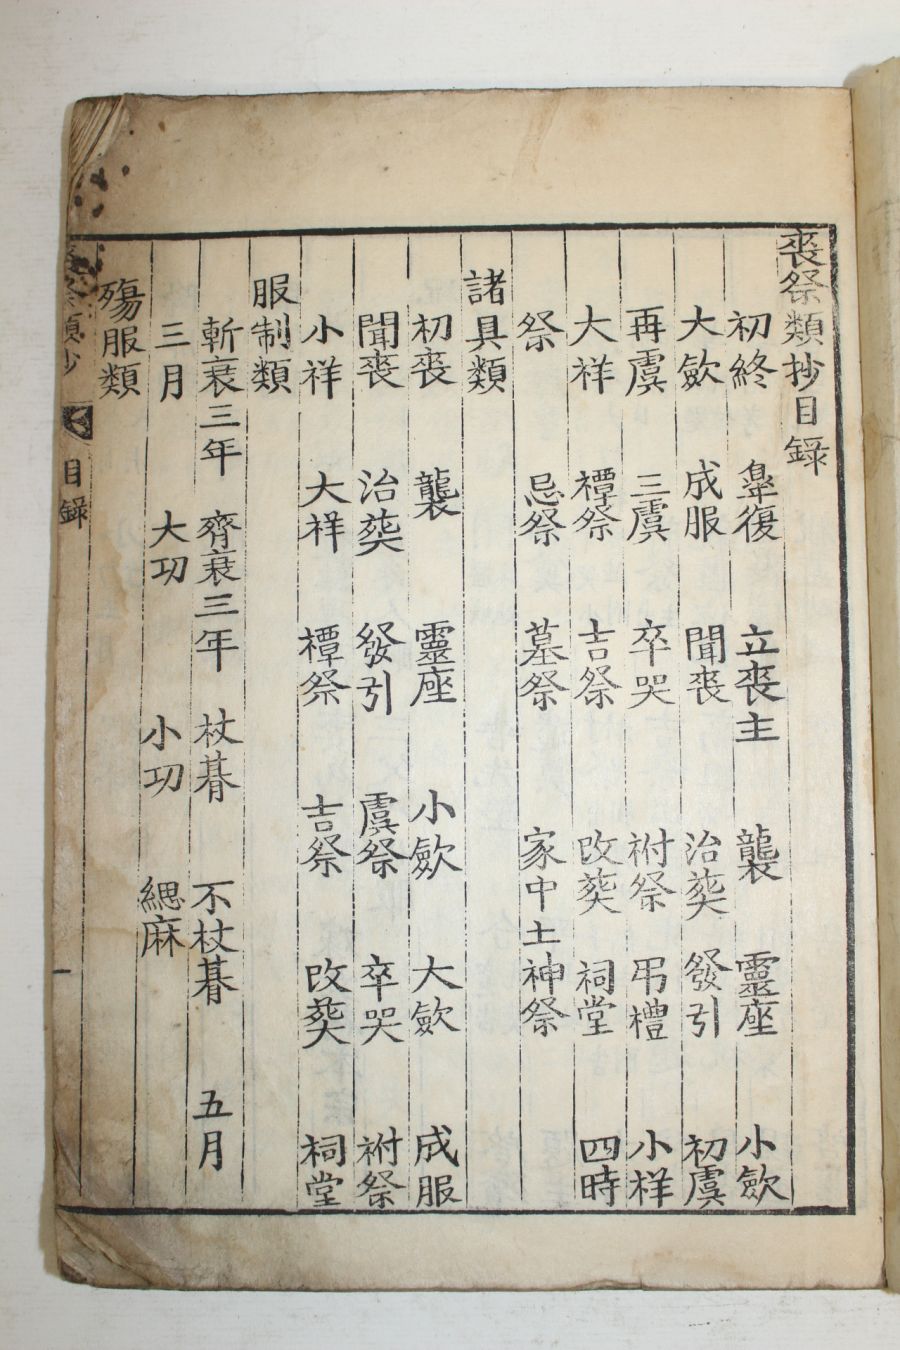 喪祭類抄目錄
初終 皐復 立喪主 襲 靈座 小斂
大斂 成服 聞喪 治葬 發引 初虞
再虞 三虞 卒哭 祔祭 弔禮 小祥
大祥 禫祭 吉祭 改葬 祠堂 四時
祭 忌祭 墓祭 家中土神祭
諸具類
初喪 襲 靈座 小斂 大斂 成服
聞喪 治葬 發引 虞祭 卒哭 祔祭
小祥 大祥 禫祭 吉祭 改葬 祠堂
服制類
斬衰三年 齊衰三年 杖朞 不杖朞 五月
三月 大功 小功 緦麻
殤服類
喪祭類抄 目錄